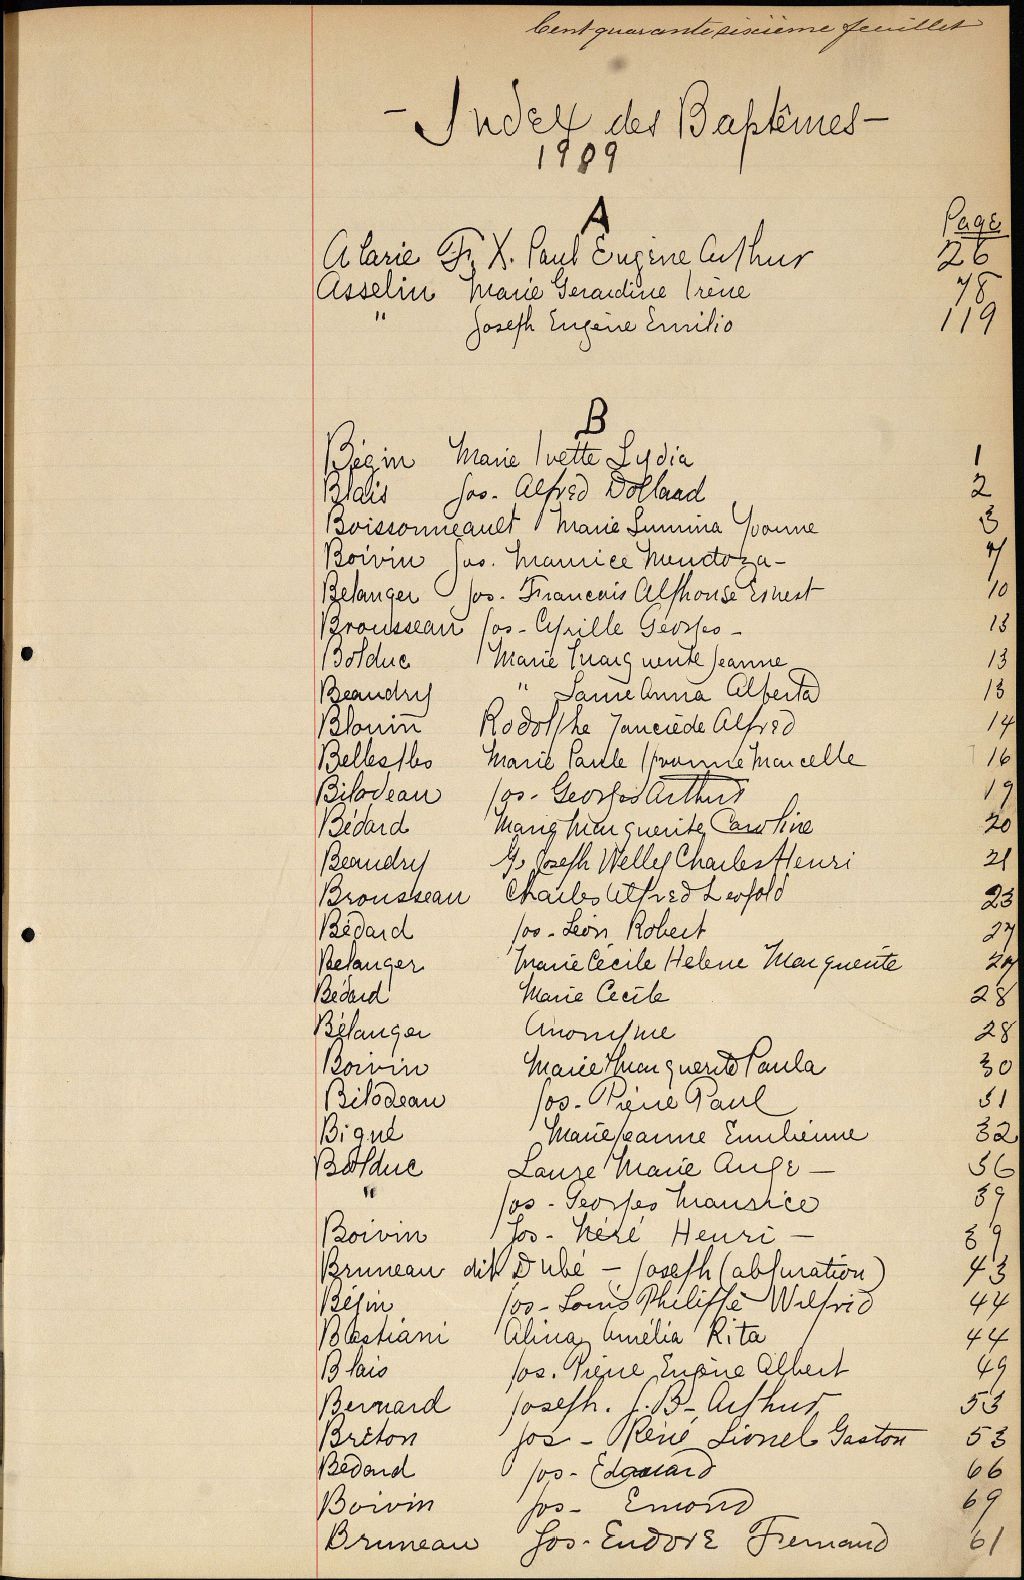 Cent quarante sixième feuillet
- Index des Baptêmes -
1909
A
Page
Alarie F. X. Paul Eugène Arthur 26
Asselin Marie Gerardine Irène 78
" Joseph Eugène Emilio 119
B
Bégin Marie Ivette Lydia 1
Blais Jos. Alfred Dollard 2
Boissonneault Marie Lumina Yvonne 3
Boivin Jos. Maurice Mendoza - 7
Belanger Jos. Francois Alphonse Ernest 10
Brousseau Jos - Cyrille Georges - 13
Bolduc Marie Marguerite Jeanne 13
Beaudry " Anna Alberta 13
Blouin Rodolphe Alfred 14
Bellesiles Marie Paule Yvonne Marcelle 16
Bilodeau Jos - Georges Arthur 19
Bédard Marie Marguerite Caroline 20
Beaudry G. Joseph Welley Charles Henri 21
Brousseau Charles Alfred Leopold 23
Bédard Jos - Léon Robert 27
Belanger Marie Cécile Helene Marguerite 27
Bédard Marie Cecile 28
Bélanger Anonyme 28
Boivin Marie Marguerite Paula 30
Bilodeau Jos - Pierre Paul 31
Bigué Marie Jeanne Emilienne 32
Bolduc Laure Marie Ange - 36
" Jos - Georges Maurice 39
Boivin Jos - Néré Henri - 39
Bruneau dit Dubé - Joseph (abjuration) 43
Bégin Jos - Louis Philippe Wilfrid 44
Bastiani Alina Amélia Rita 44
Blais Jos. Pierre Eugène Albert 49
Bernard Joseph. J. B - Arthur 53
Breton Jos - Réné Lionel Gaston 53
Bédard Jos - Edouard 66
Boivin Jos - Emond 69
Bruneau Jos - Eudore Fernand 61